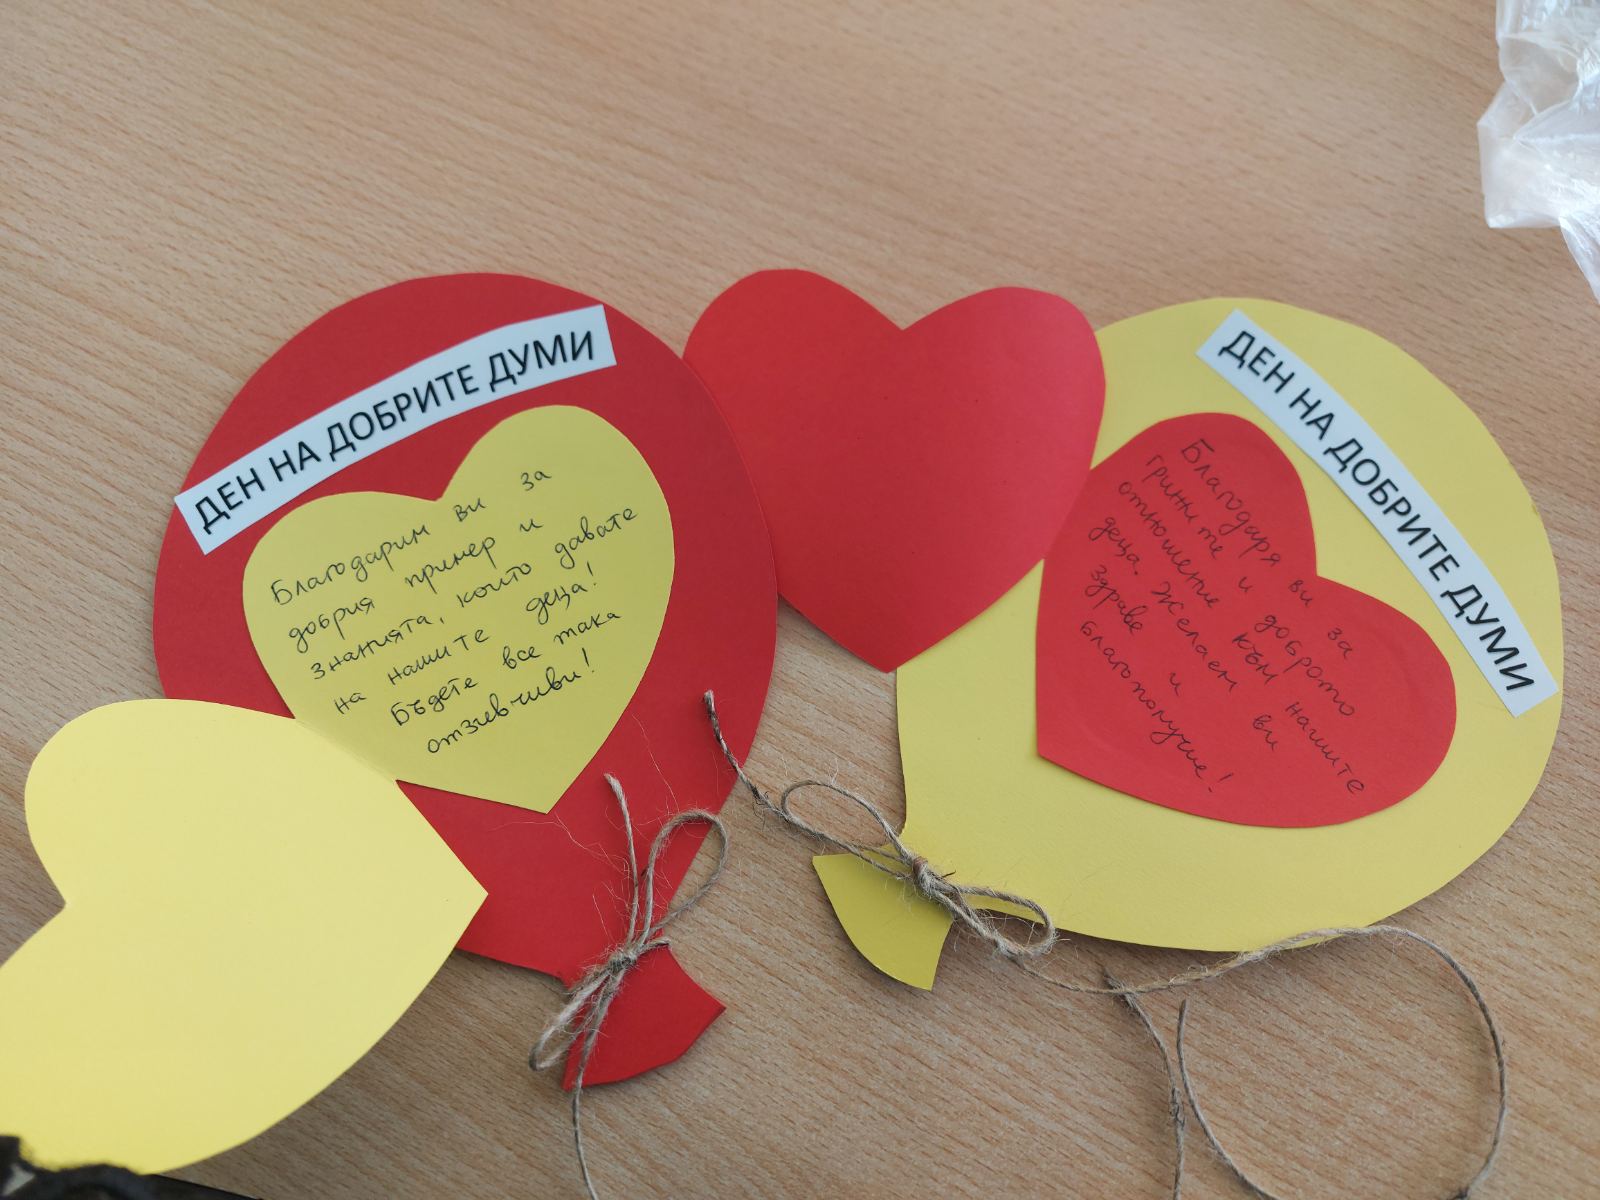 ДЕН НА ДОБРИТЕ ДУМИ
Благодарим ви за
добрия пример и
знанията, които давате
на нашите деца!
Бъдете все така
отзивчиви!
ДЕН НА ДОБРИТЕ ДУМИ
Благодаря ви за
грижите и доброто
отношение към нашите
деца. Желаем ви
здраве и
благополучие!